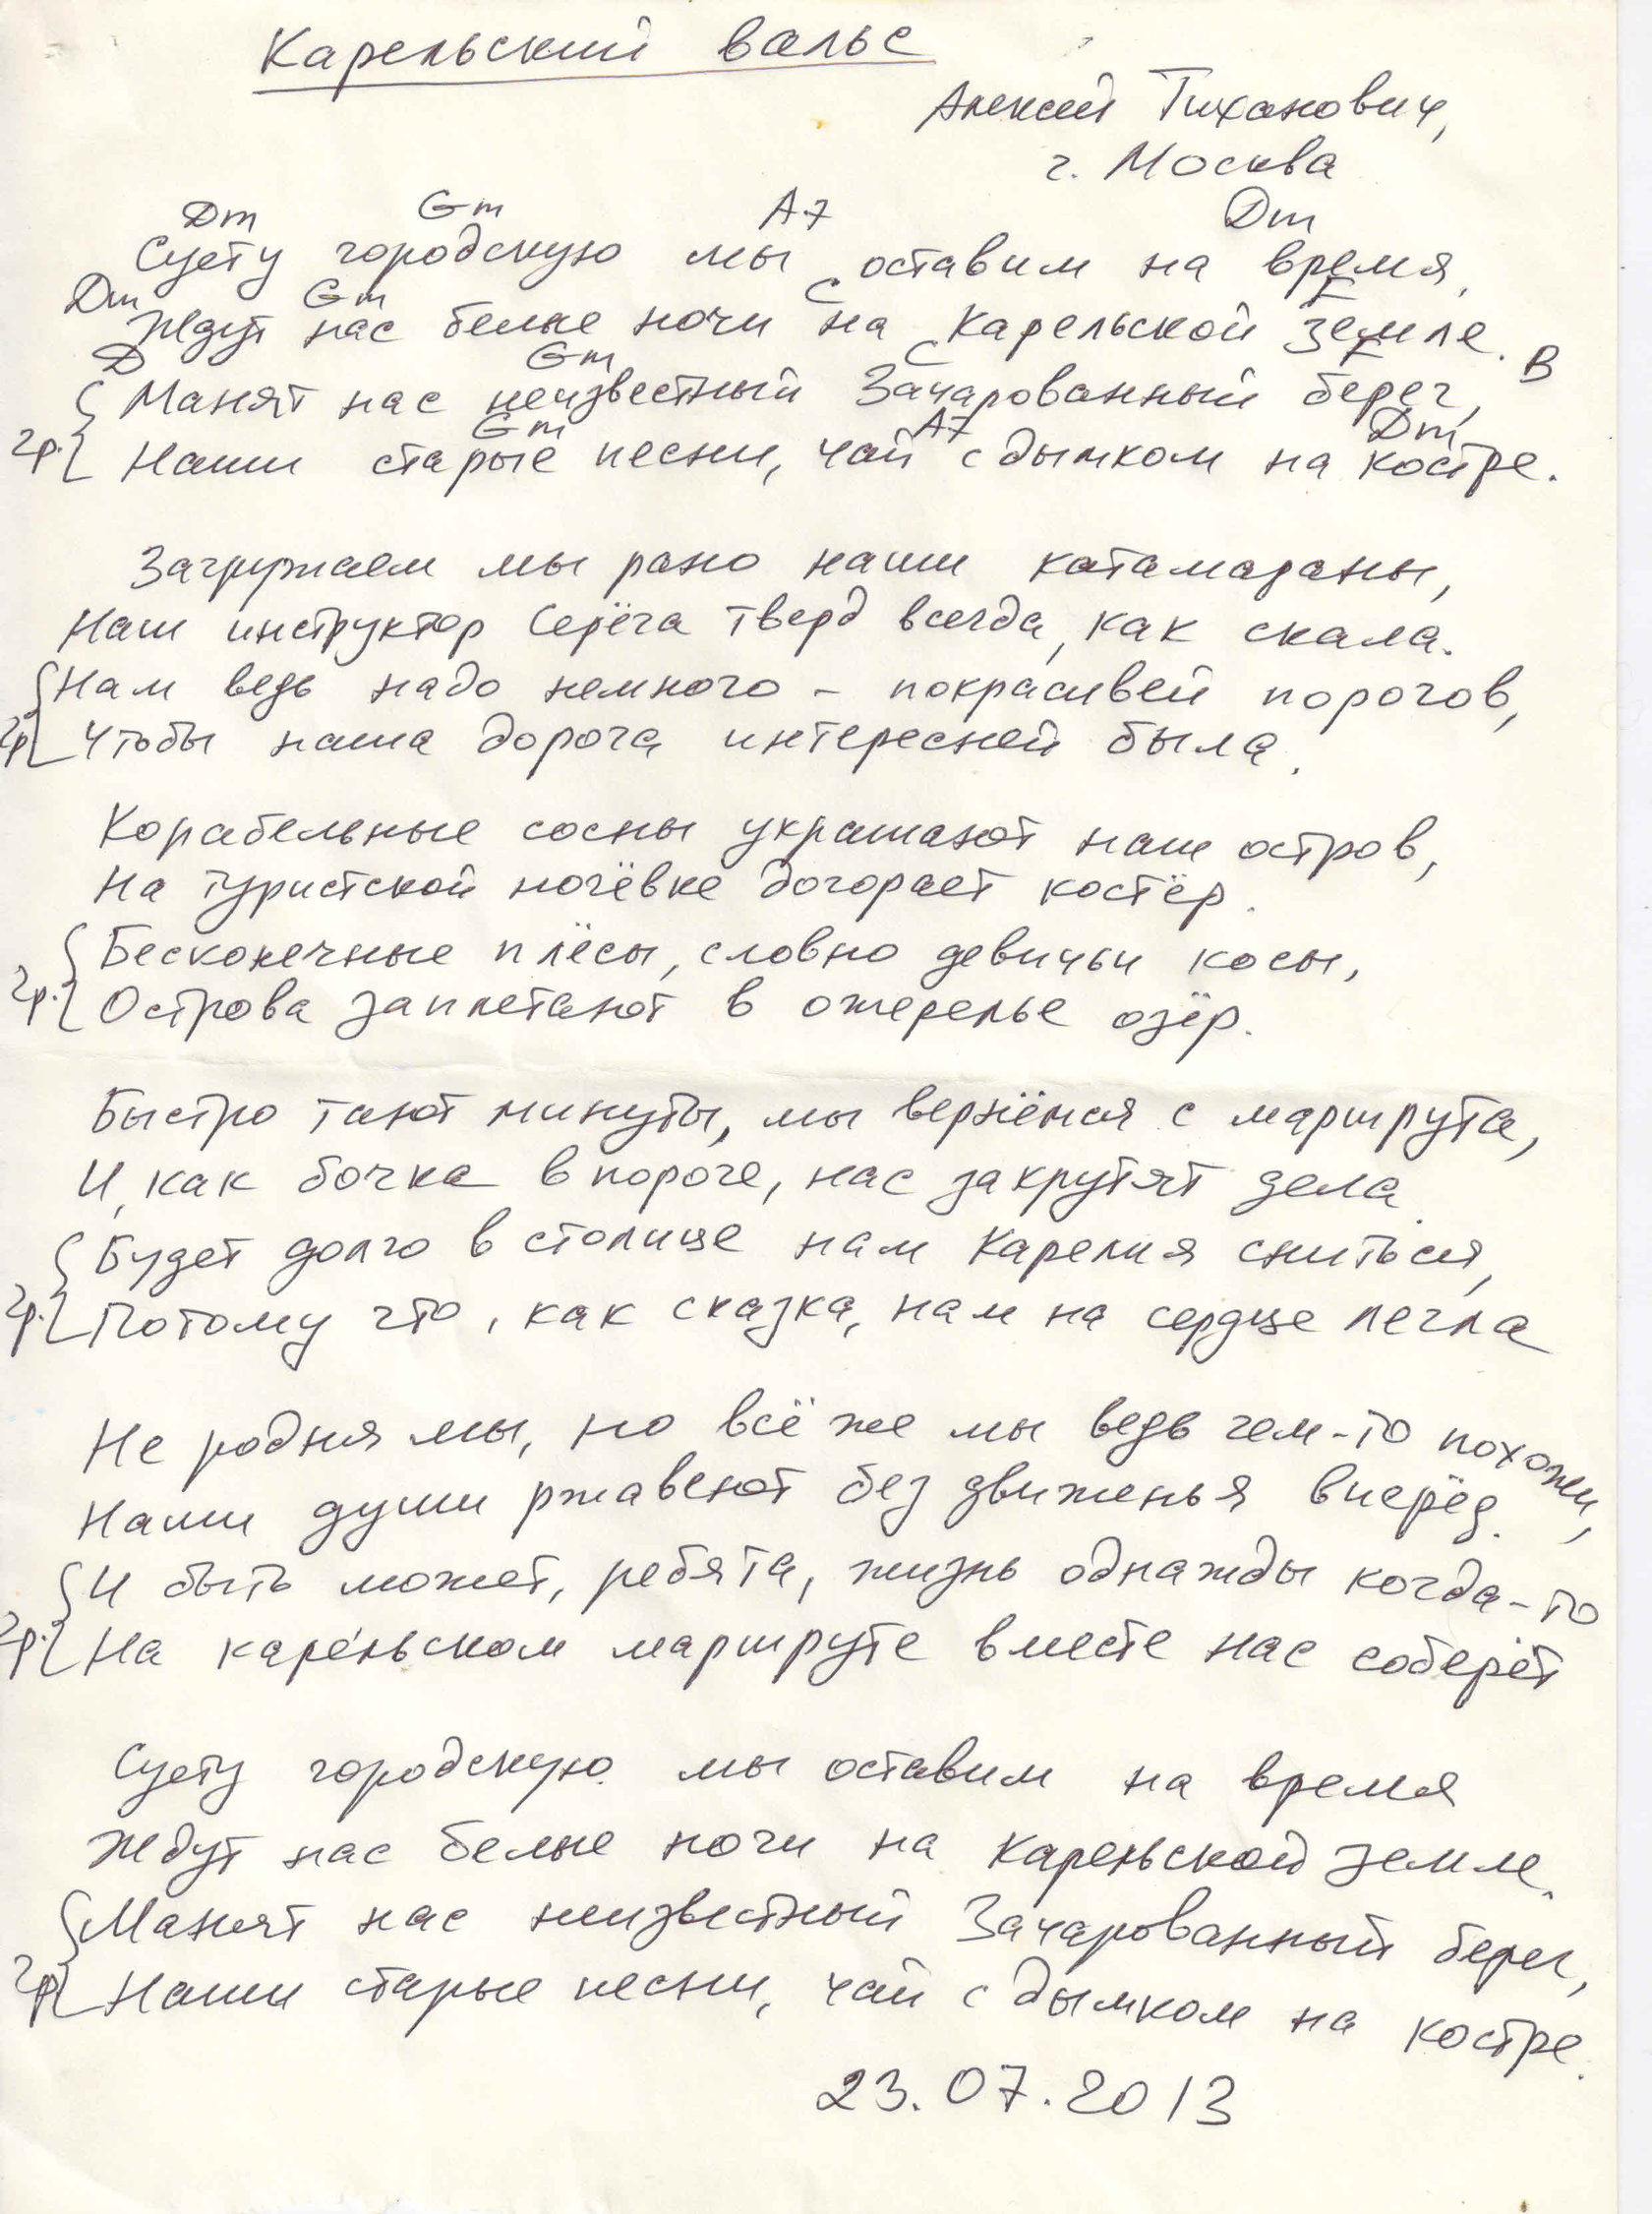 Карельский вальс
Алексей Тиханович,
г. Москва
Dm Gm A7 Dm
Суету городскую мы оставим на время,
Dm Gm C F
Ждут нас белые ночи на карельской земле.
D Gm C F B
Манят нас неизвестный Зачарованный берег,
Gm A7 Dm
2р. Наши старые песни, чай с дымком на костре.
Загружаем мы рано наши катамараны,
Наш инструктор Серёга твёрд всегда, как скала.
Нам ведь надо немного – покрасивей порогов,
2р Чтобы наша дорога интересней была.
Корабельные сосны украшают наш остров,
На туристской ночёвке догорает костёр.
Бесконечные плёсы, словно девичьи косы,
2р. Острова заплетают в ожерелье озёр.
Быстро тают минуты, мы вернёмся с маршрута,
И, как бочка в пороге, нас закрутят дела.
Будет долго в столице нам Карелия сниться,
2р. Потому что, как сказка, нам на сердце легла
Не родня мы, но всё же мы ведь чем-то похожи,
Наши души ржавеют без движенья вперёд.
И быть может, ребята, жизнь однажды когда-то
2р. На карельском маршруте вместе нас соберёт
Суету городскую мы оставим на время
Ждут нас белые ночи на карельской земле.
Манят нас неизвестный Зачарованный берег,
2р Наши старые песни, чай с дымком на костре.
23.07.2013